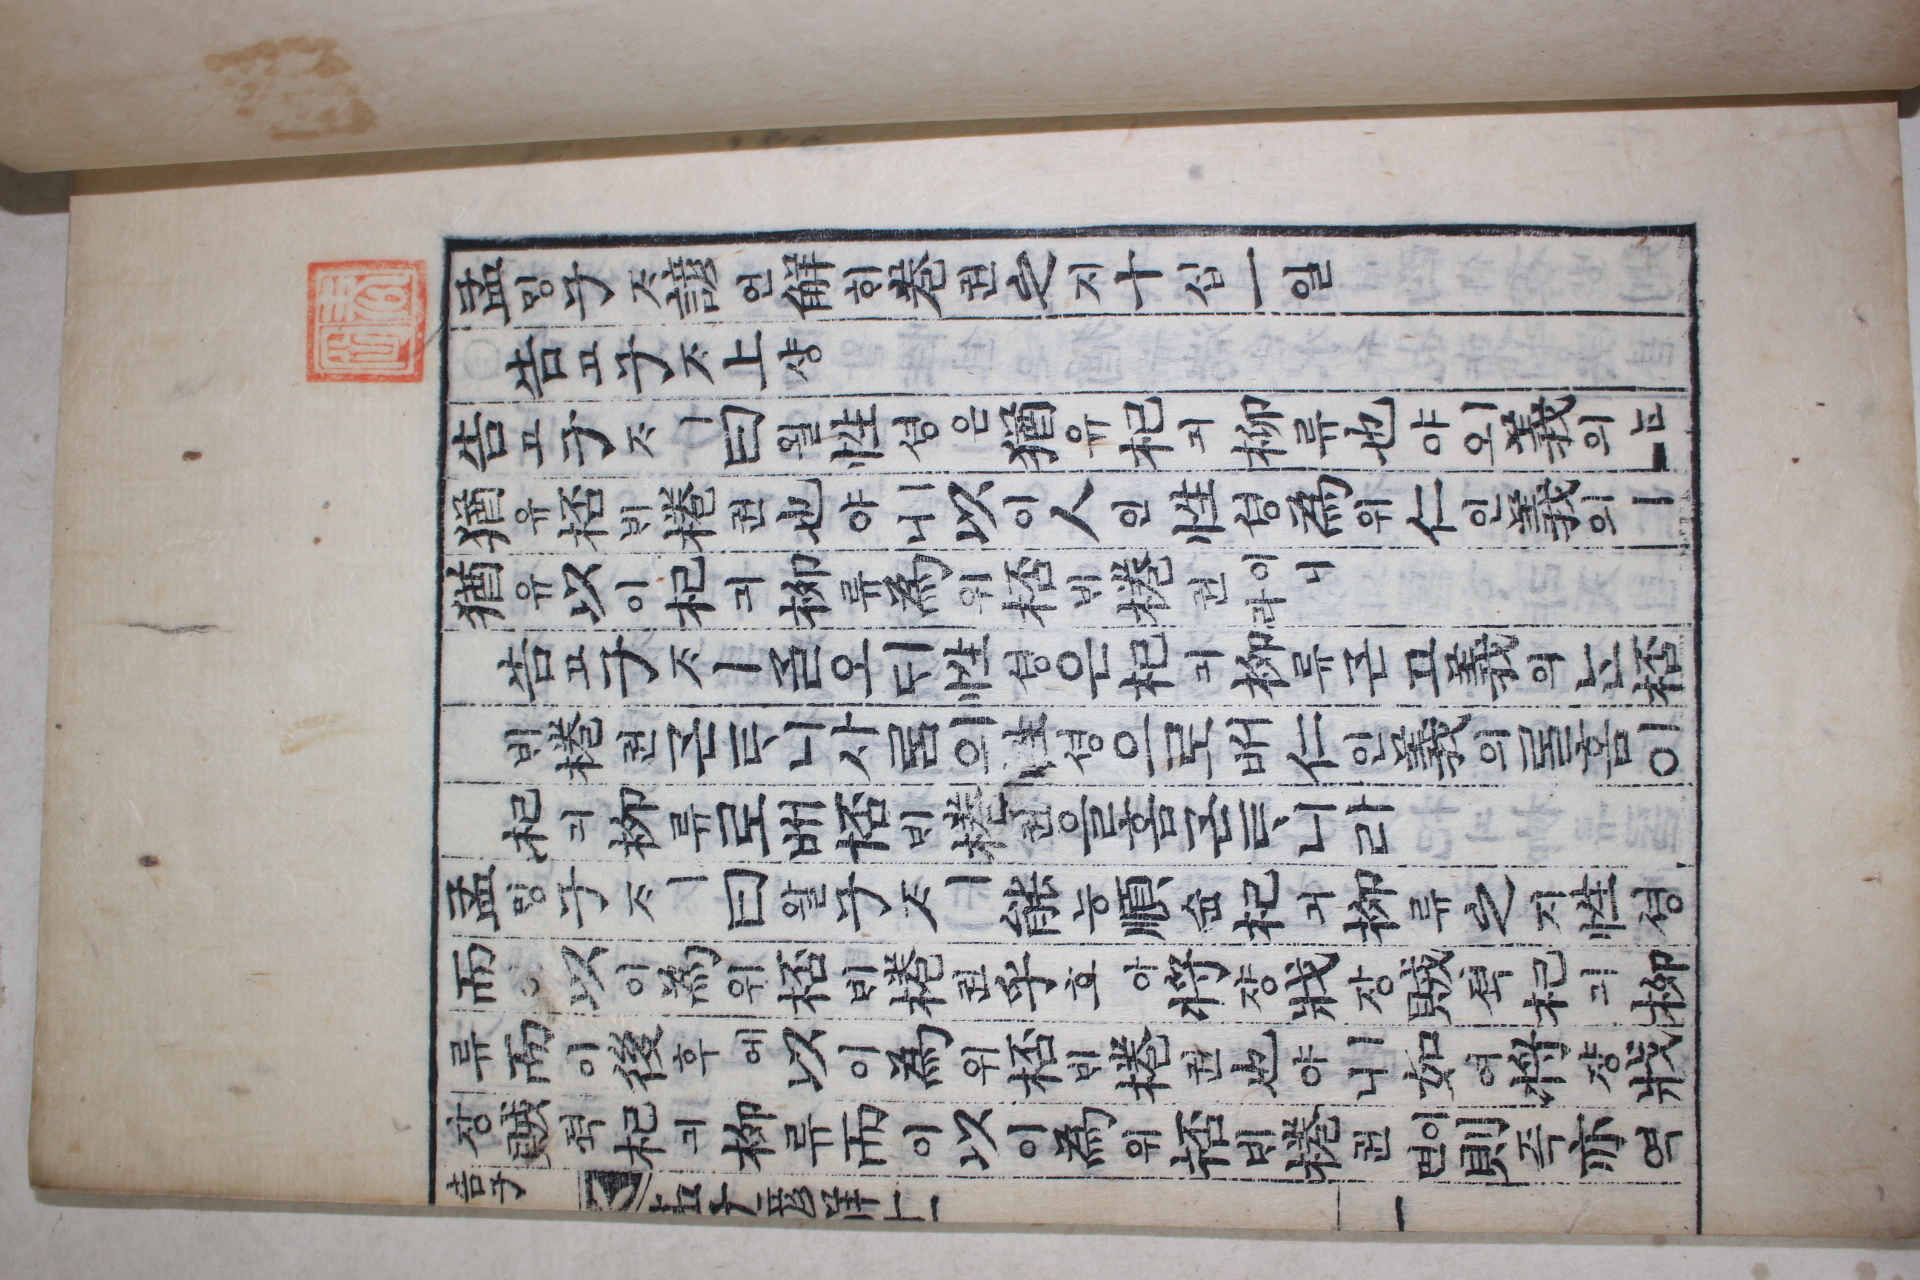 孟ᄆᆡᆼ子ᄌᆞ諺언解ᄒᆡ卷권之지十십一일
告고子ᄌᆞ上샹
告고子ᄌᆞㅣ曰왈性셩은猶유杞긔柳류也야ㅣ오義의ᄂᆞᆫ
猶유桮ᄇᆡ棬권也야ㅣ니以이人인性셩爲위仁인義의ㅣ
猶유以이杞긔柳류爲위桮ᄇᆡ棬권이니라
告고子ᄌᆞㅣᄀᆞᆯ오ᄃᆡ性셩은杞긔柳류ᄀᆞᆮ고義의ᄂᆞᆫ桮
ᄇᆡ棬권ᄀᆞᆮᄐᆞ니사ᄅᆞᆷ의性셩으로ᄡᅥ仁인義의ᄅᆞᆯ홈이
杞긔柳류로ᄡᅥ桮ᄇᆡ棬권을홈ᄀᆞᆮᄐᆞ니라
孟ᄆᆡᆼ子ᄌᆞㅣ曰왈子ᄌᆞㅣ能능順슌杞긔柳류之지性셩
而이以이爲위桮ᄇᆡ棬권乎호아將쟝戕쟝賊적杞긔柳
류而이後후에以이爲위桮ᄇᆡ棬권也야ㅣ니如여將쟝戕
장賊적杞긔柳류而이以이爲위桮ᄇᆡ棬권이면則즉亦역
告子
孟子諺解十一
一